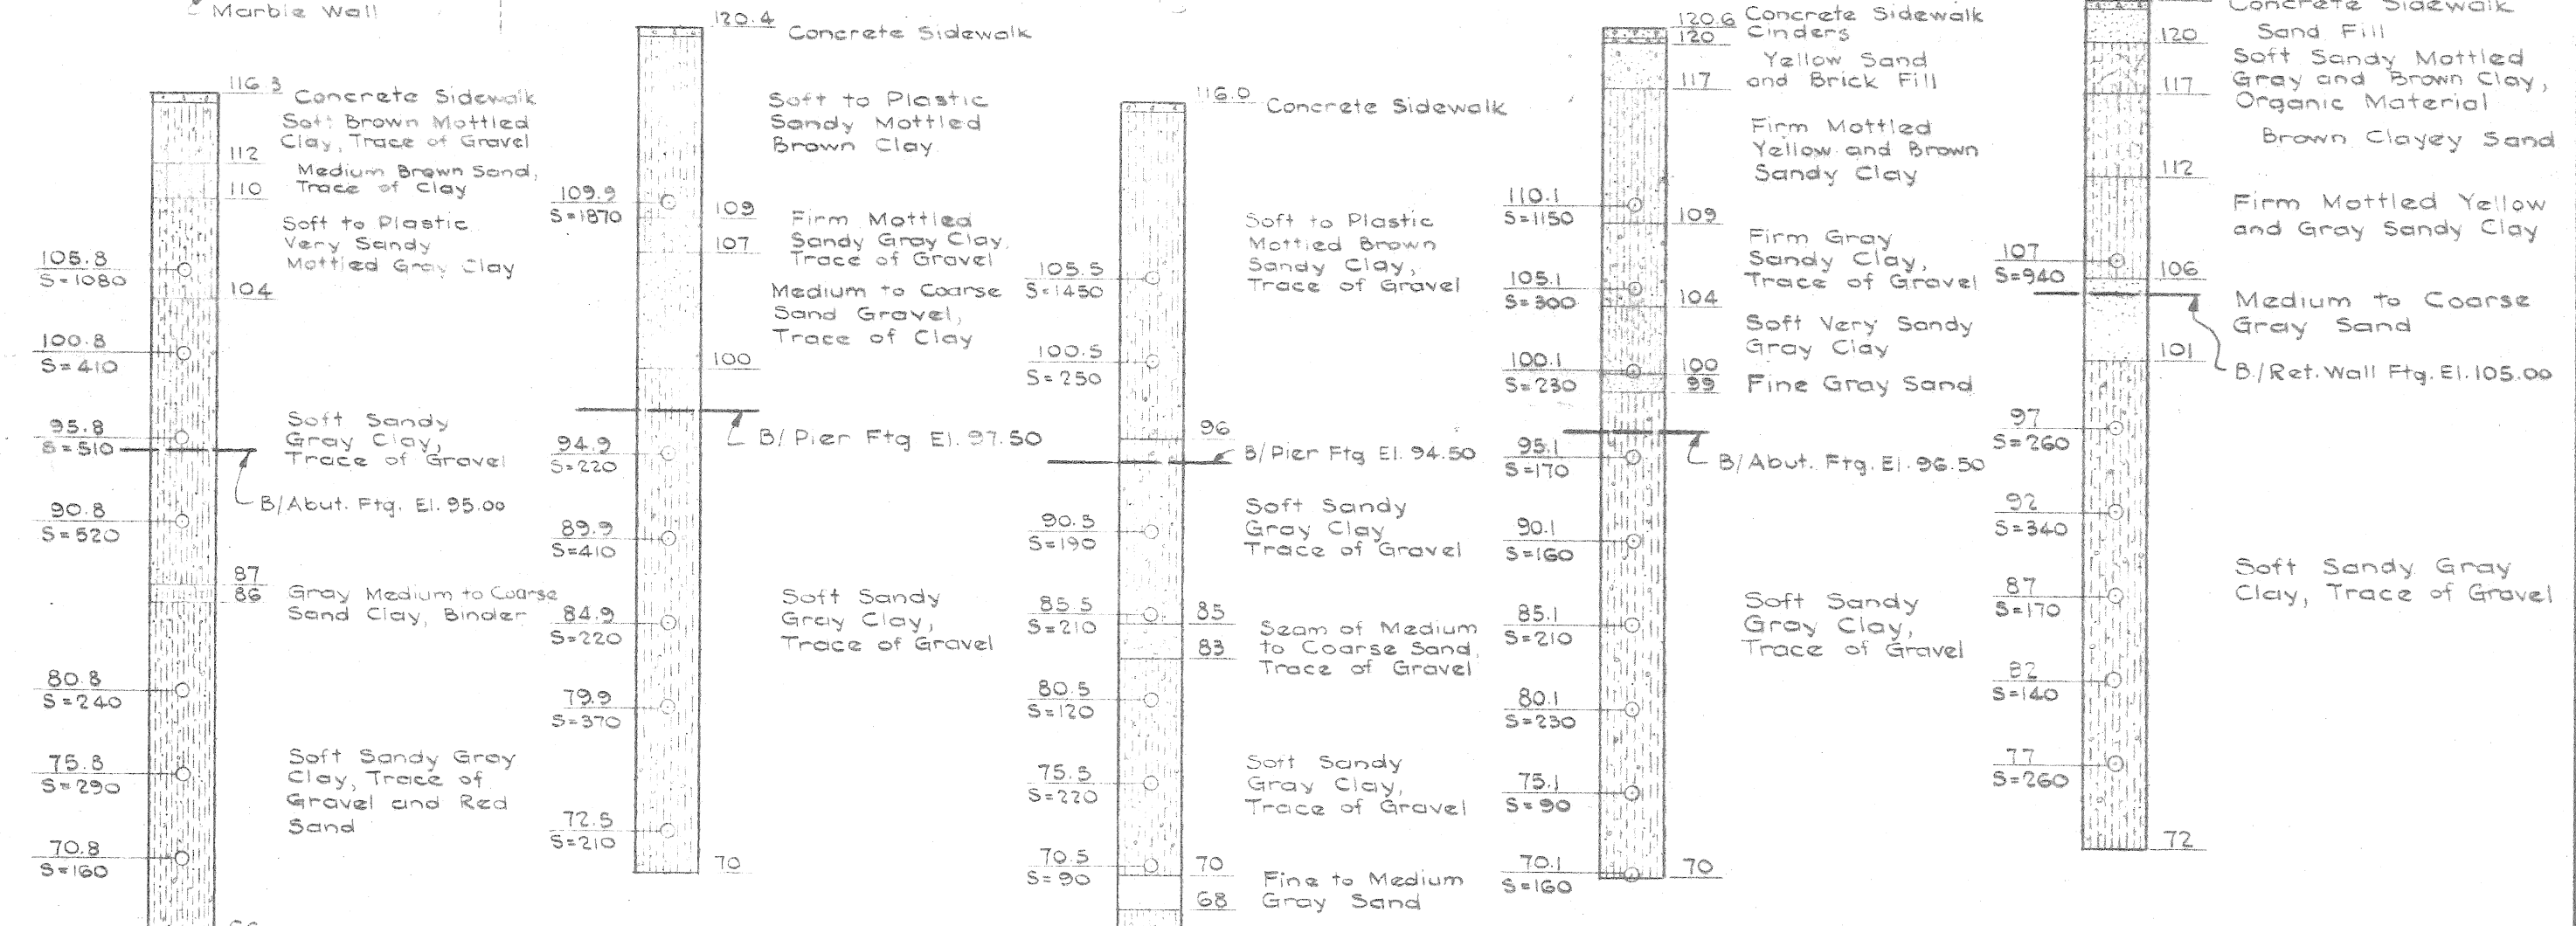 Marble Wall
116.3
Concrete Sidewalk
Soft Brown Mottled
Clay, Trace of Gravel
112
Medium Brown Sand,
Trace of Clay
110
Soft to Plastic
Very Sandy
Mottled Gray Clay
105.8
S=1080
104
100.8
S=410
95.8
S=510
Soft Sandy
Gray Clay,
Trace of Gravel
B/Abut. Ftg. El. 95.00
90.8
S=520
87
86
Gray Medium to Coarse
Sand Clay, Binder
80.8
S=240
75.8
S=290
Soft Sandy Gray
Clay, Trace of
Gravel and Red
Sand
70.8
S=160
120.4
Concrete Sidewalk
Soft to Plastic
Sandy Mottled
Brown Clay
109.9
S=1870
109
Firm Mottled
Sandy Gray Clay,
Trace of Gravel
107
Medium to Coarse
Sand Gravel,
Trace of Clay
100
B/Pier Ftg El. 97.50
94.9
S=220
89.9
S=410
84.9
S=220
Soft Sandy
Gray Clay,
Trace of Gravel
79.9
S=370
72.5
S=210
70
116.0
Concrete Sidewalk
Soft to Plastic
Mottled Brown
Sandy Clay,
Trace of Gravel
105.5
S=1450
100.5
S=250
96
B/Pier Ftg El. 94.50
90.5
S=190
Soft Sandy
Gray Clay
Trace of Gravel
85.5
S=210
85
Seam of Medium
to Coarse Sand,
Trace of Gravel
83
80.5
S=120
75.5
S=220
Soft Sandy
Gray Clay,
Trace of Gravel
70.5
S=90
70
Fine to Medium
Gray Sand
68
120.6
Concrete Sidewalk
120
Cinders
Yellow Sand
and Brick Fill
117
Firm Mottled
Yellow and Brown
Sandy Clay
110.1
S=1150
109
Firm Gray
Sandy Clay,
Trace of Gravel
105.1
S=300
104
Soft Very Sandy
Gray Clay
100.1
S=230
100
99
Fine Gray Sand
95.1
S=170
B/Abut. Ftg. El. 96.50
90.1
S=160
85.1
S=210
Soft Sandy
Gray Clay,
Trace of Gravel
80.1
S=230
75.1
S=90
70.1
S=160
70
Concrete Sidewalk
120
Sand Fill
Soft Sandy Mottled
Gray and Brown Clay,
Organic Material
117
Brown Clayey Sand
112
Firm Mottled Yellow
and Gray Sandy Clay
107
S=940
106
Medium to Coarse
Gray Sand
101
B/Ret. Wall Ftg. El. 105.00
97
S=260
92
S=340
87
S=170
Soft Sandy Gray
Clay, Trace of Gravel
82
S=140
77
S=260
72